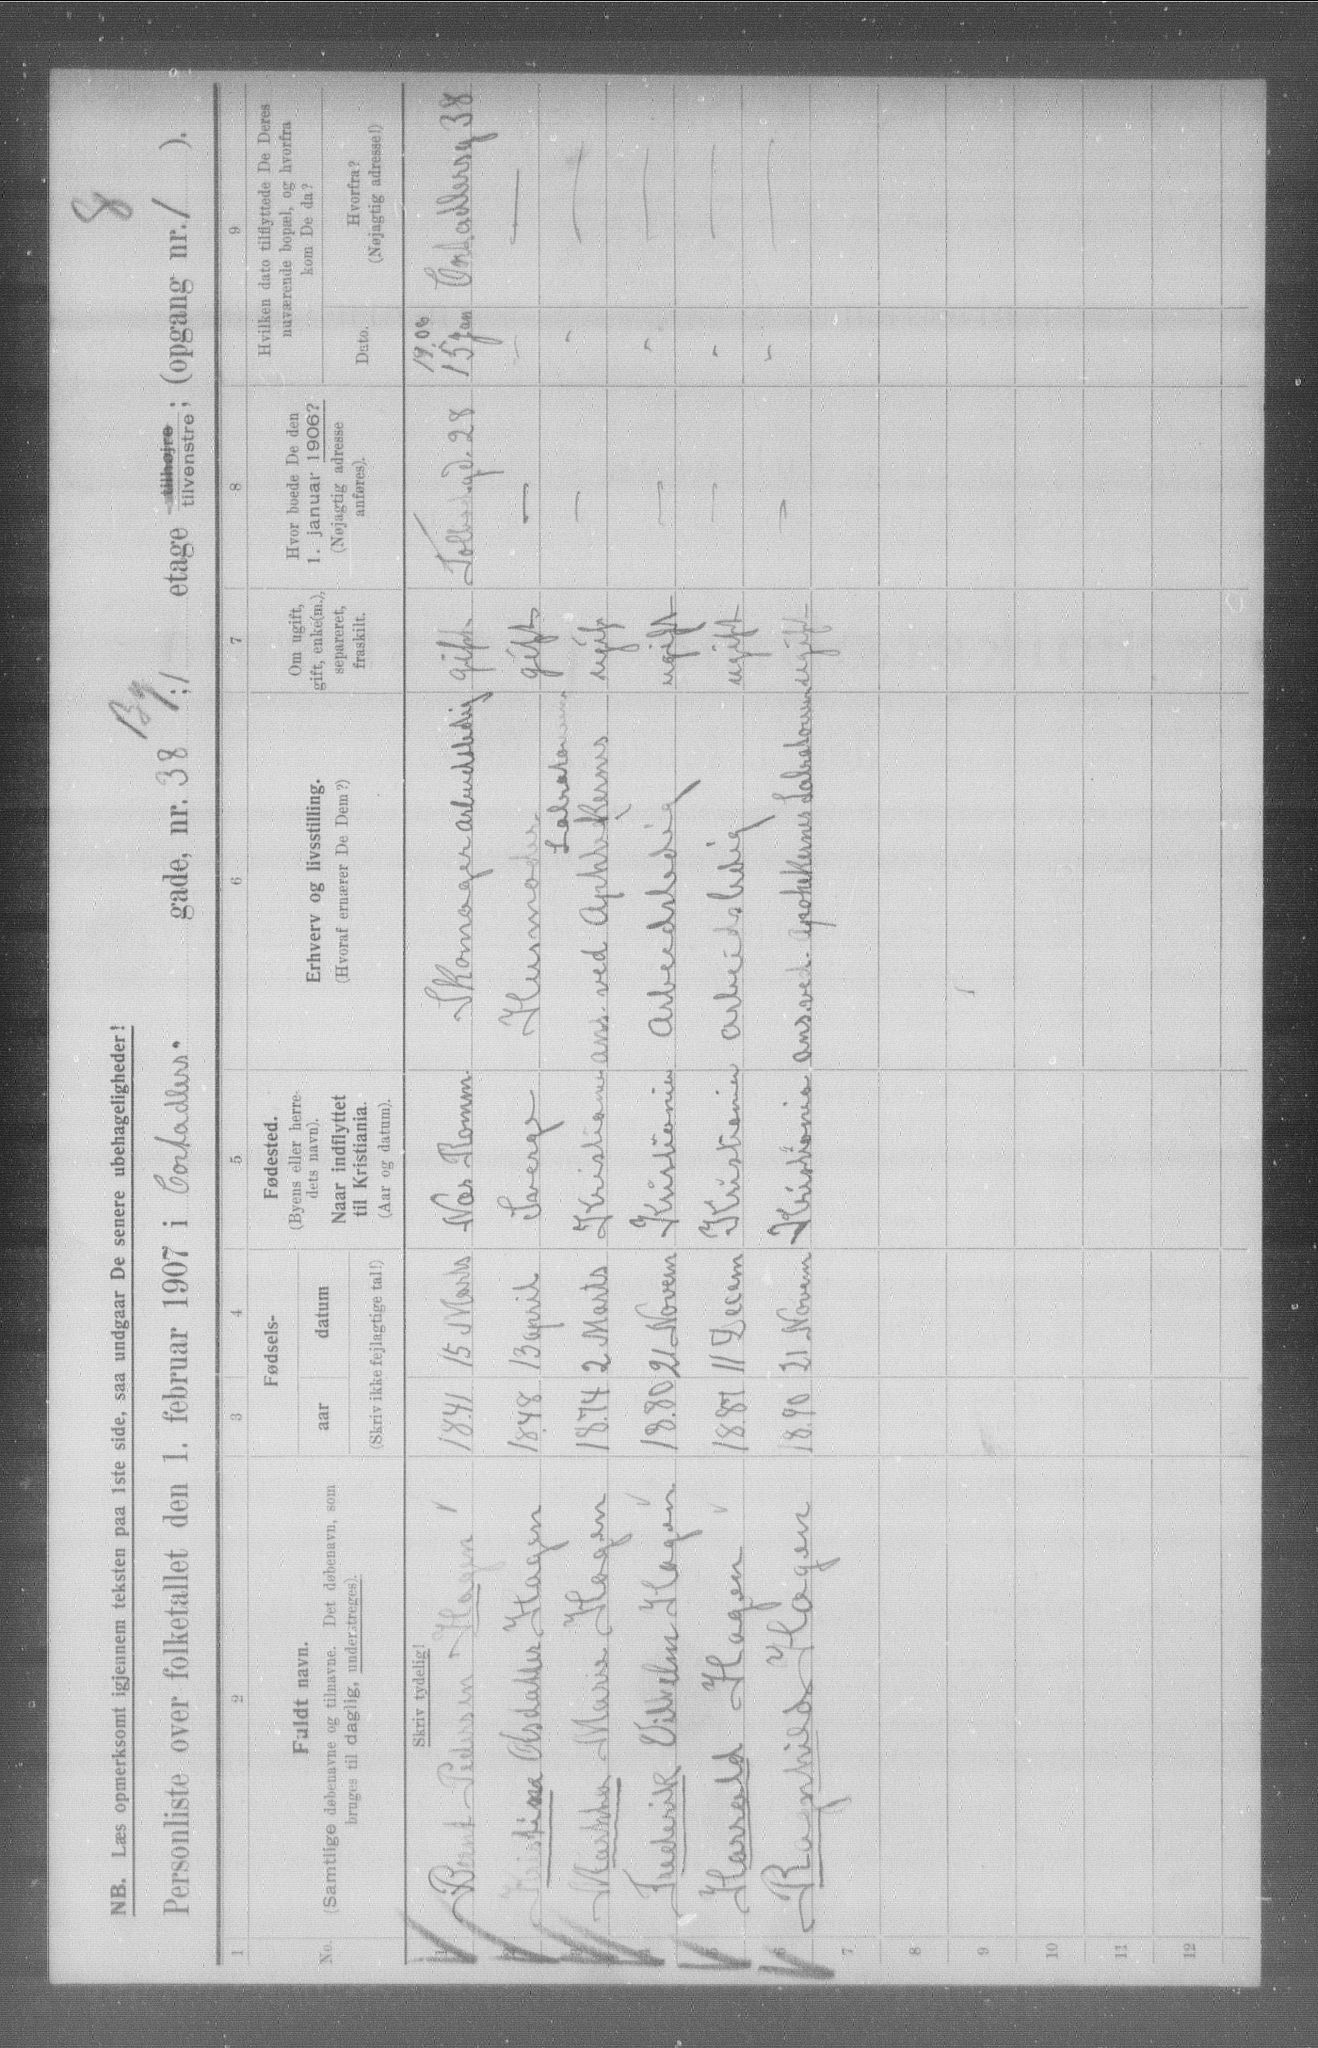 8
NB. Læs opmerksomt igjennem teksten paa 1ste side, saa undgaar De senere ubehageligheder!
By
Personliste over folketallet den 1. februar 1907 i Cortadlers. gade, nr. 38 ; / etage tilhøjre tilvenstre; (opgang nr. / ).
1 2 3 4 5 6 7 8 9
No.
Fuldt navn.
(Samtlige døbenavne og tilnavne. Det døbenavn, som
bruges til daglig, understreges).
Fødsels-
aar datum
(Skriv ikke fejlagtige tal!)
Fødested.
(Byens eller herre-
dets navn).
Naar indflyttet
til Kristiania.
(Aar og datum).
Erhverv og livsstilling.
(Hvoraf ernærer De Dem?)
Om ugift,
gift, enke(m.),
separeret,
fraskilt.
Hvor boede De den
1. januar 1906?
(Nøjagtig adresse
anføres).
Hvilken dato tilflyttede De Deres
nuværende bopæl, og hvorfra
kom De da?
Dato.
Hvorfra?
(Nøjagtig adresse!)
Skriv tydelig!
1906
1 Bernt Pedersen Hagen 1841 15 Marts Nes Romm. Skomager arbeidsledig gift Tolbodgd. 28 15 Jan Cortadlersg 38
2 Kristina Hagen 1848 13 april Sverge Husmoder gift — " —
Laboratorium
3 Martha Marie Hagen 1874 2 Marts Kristiania ans. ved Apothekernes ugift — " —
4 Frederik Vilhelm Hagen 1880 21 Novem Kristiania Arbeidsledig ugift — " —
5 Harrald Hagen 1887 11 Decem Kristiania arbeidsledig ugift — " —
6 Ragnhild Hagen 1890 21 Novem Kristiania ans. ved. Apothekernes Laboratorium ugift — " —
7
8
9
10
11
12